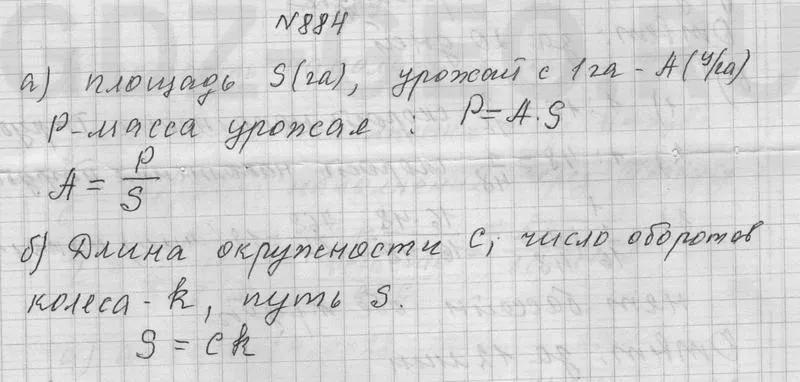 №884
а) площадь S(га), урожай с 1га - А(ц/га)
P-масса урожая : P=A·S
A = P/S
б) Длина окружности C; число оборотов
колеса - k, путь S.
S = Ck